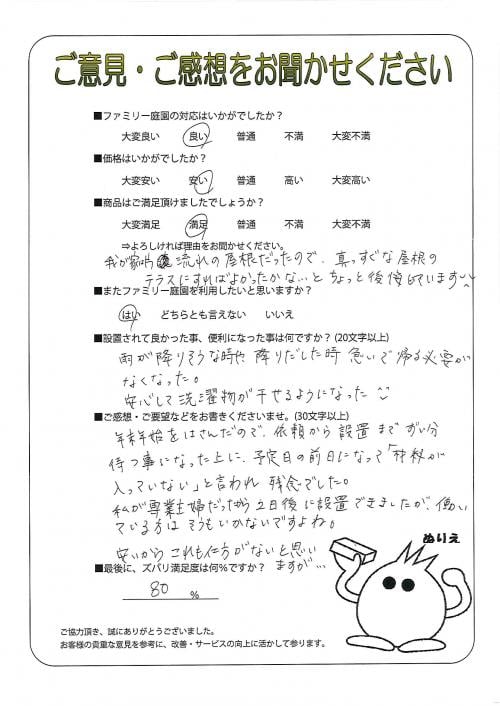 ご意見・ご感想をお聞かせください
■ファミリー庭園の対応はいかがでしたか？
大変良い 良い 普通 不満 大変不満
■価格はいかがでしたか？
大変安い 安い 普通 高い 大変高い
■商品はご満足頂けましたでしょうか？
大変満足 満足 普通 不満 大変不満
⇒よろしければ理由をお聞かせください。
我が家は片 流れの屋根だったので、真っすぐな屋根の
テラスにすればよかったかな…とちょっと後悔しています
■またファミリー庭園を利用したいと思いますか？
はい どちらとも言えない いいえ
■設置されて良かった事、便利になった事は何ですか？(20文字以上)
雨が降りそうな時や、降りだした時 急いで帰る必要が
なくなった。
安心して洗濯物が干せるようになった
■ご感想・ご要望などをお書きくださいませ。(30文字以上)
年末年始をはさんだので、依頼から設置までずい分
待つ事になった上に、予定日の前日になって「材料が
入っていない」と言われ 残念でした。
私が専業主婦だったから2日後に設置できましたが、働い
ている方は そうもいかないですよね。
安いからこれも仕方がないと思い
ますが…
■最後に、ズバリ満足度は何％ですか？
80 ％
ぬりえ
ご協力頂き、誠にありがとうございました。
お客様の貴重な意見を参考に、改善・サービスの向上に活かして参ります。